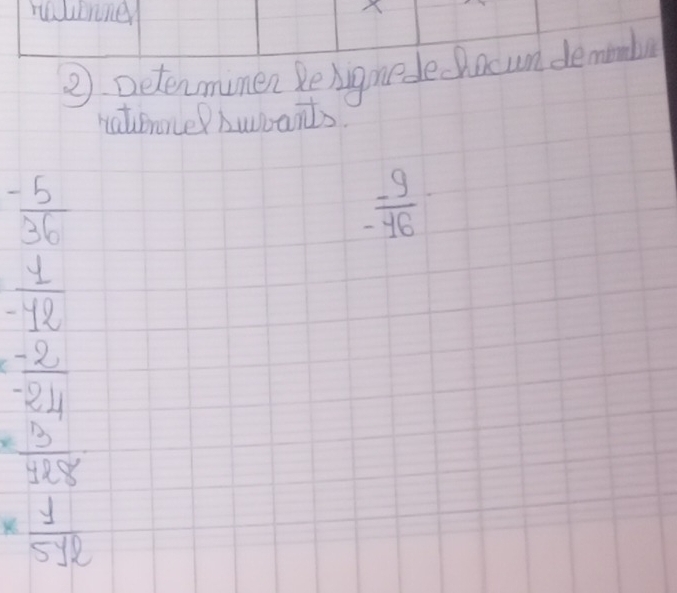 rationnel
x
② Determiner le signe de chacun de nombre
rationnel suivants.
-5/36
1/-12
-2/-24
3/128
1/512
-9/-16